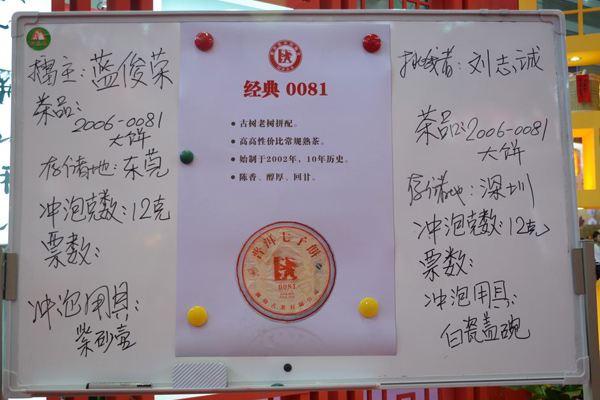 擂主：蓝俊荣
茶品：
2006-0081
大饼
存储地：东莞
冲泡克数：12克
票数：
冲泡用具：
紫砂壶
经典 0081
● 古树老树拼配。
● 高高性价比常规熟茶。
● 始制于2002年，10年历史。
● 陈香、醇厚、回甘。
普洱七子饼
0081
挑战者：刘志诚
茶品：2006-0081
大饼
存储地：深圳
冲泡克数：12克
票数：
冲泡用具：
白瓷盖碗